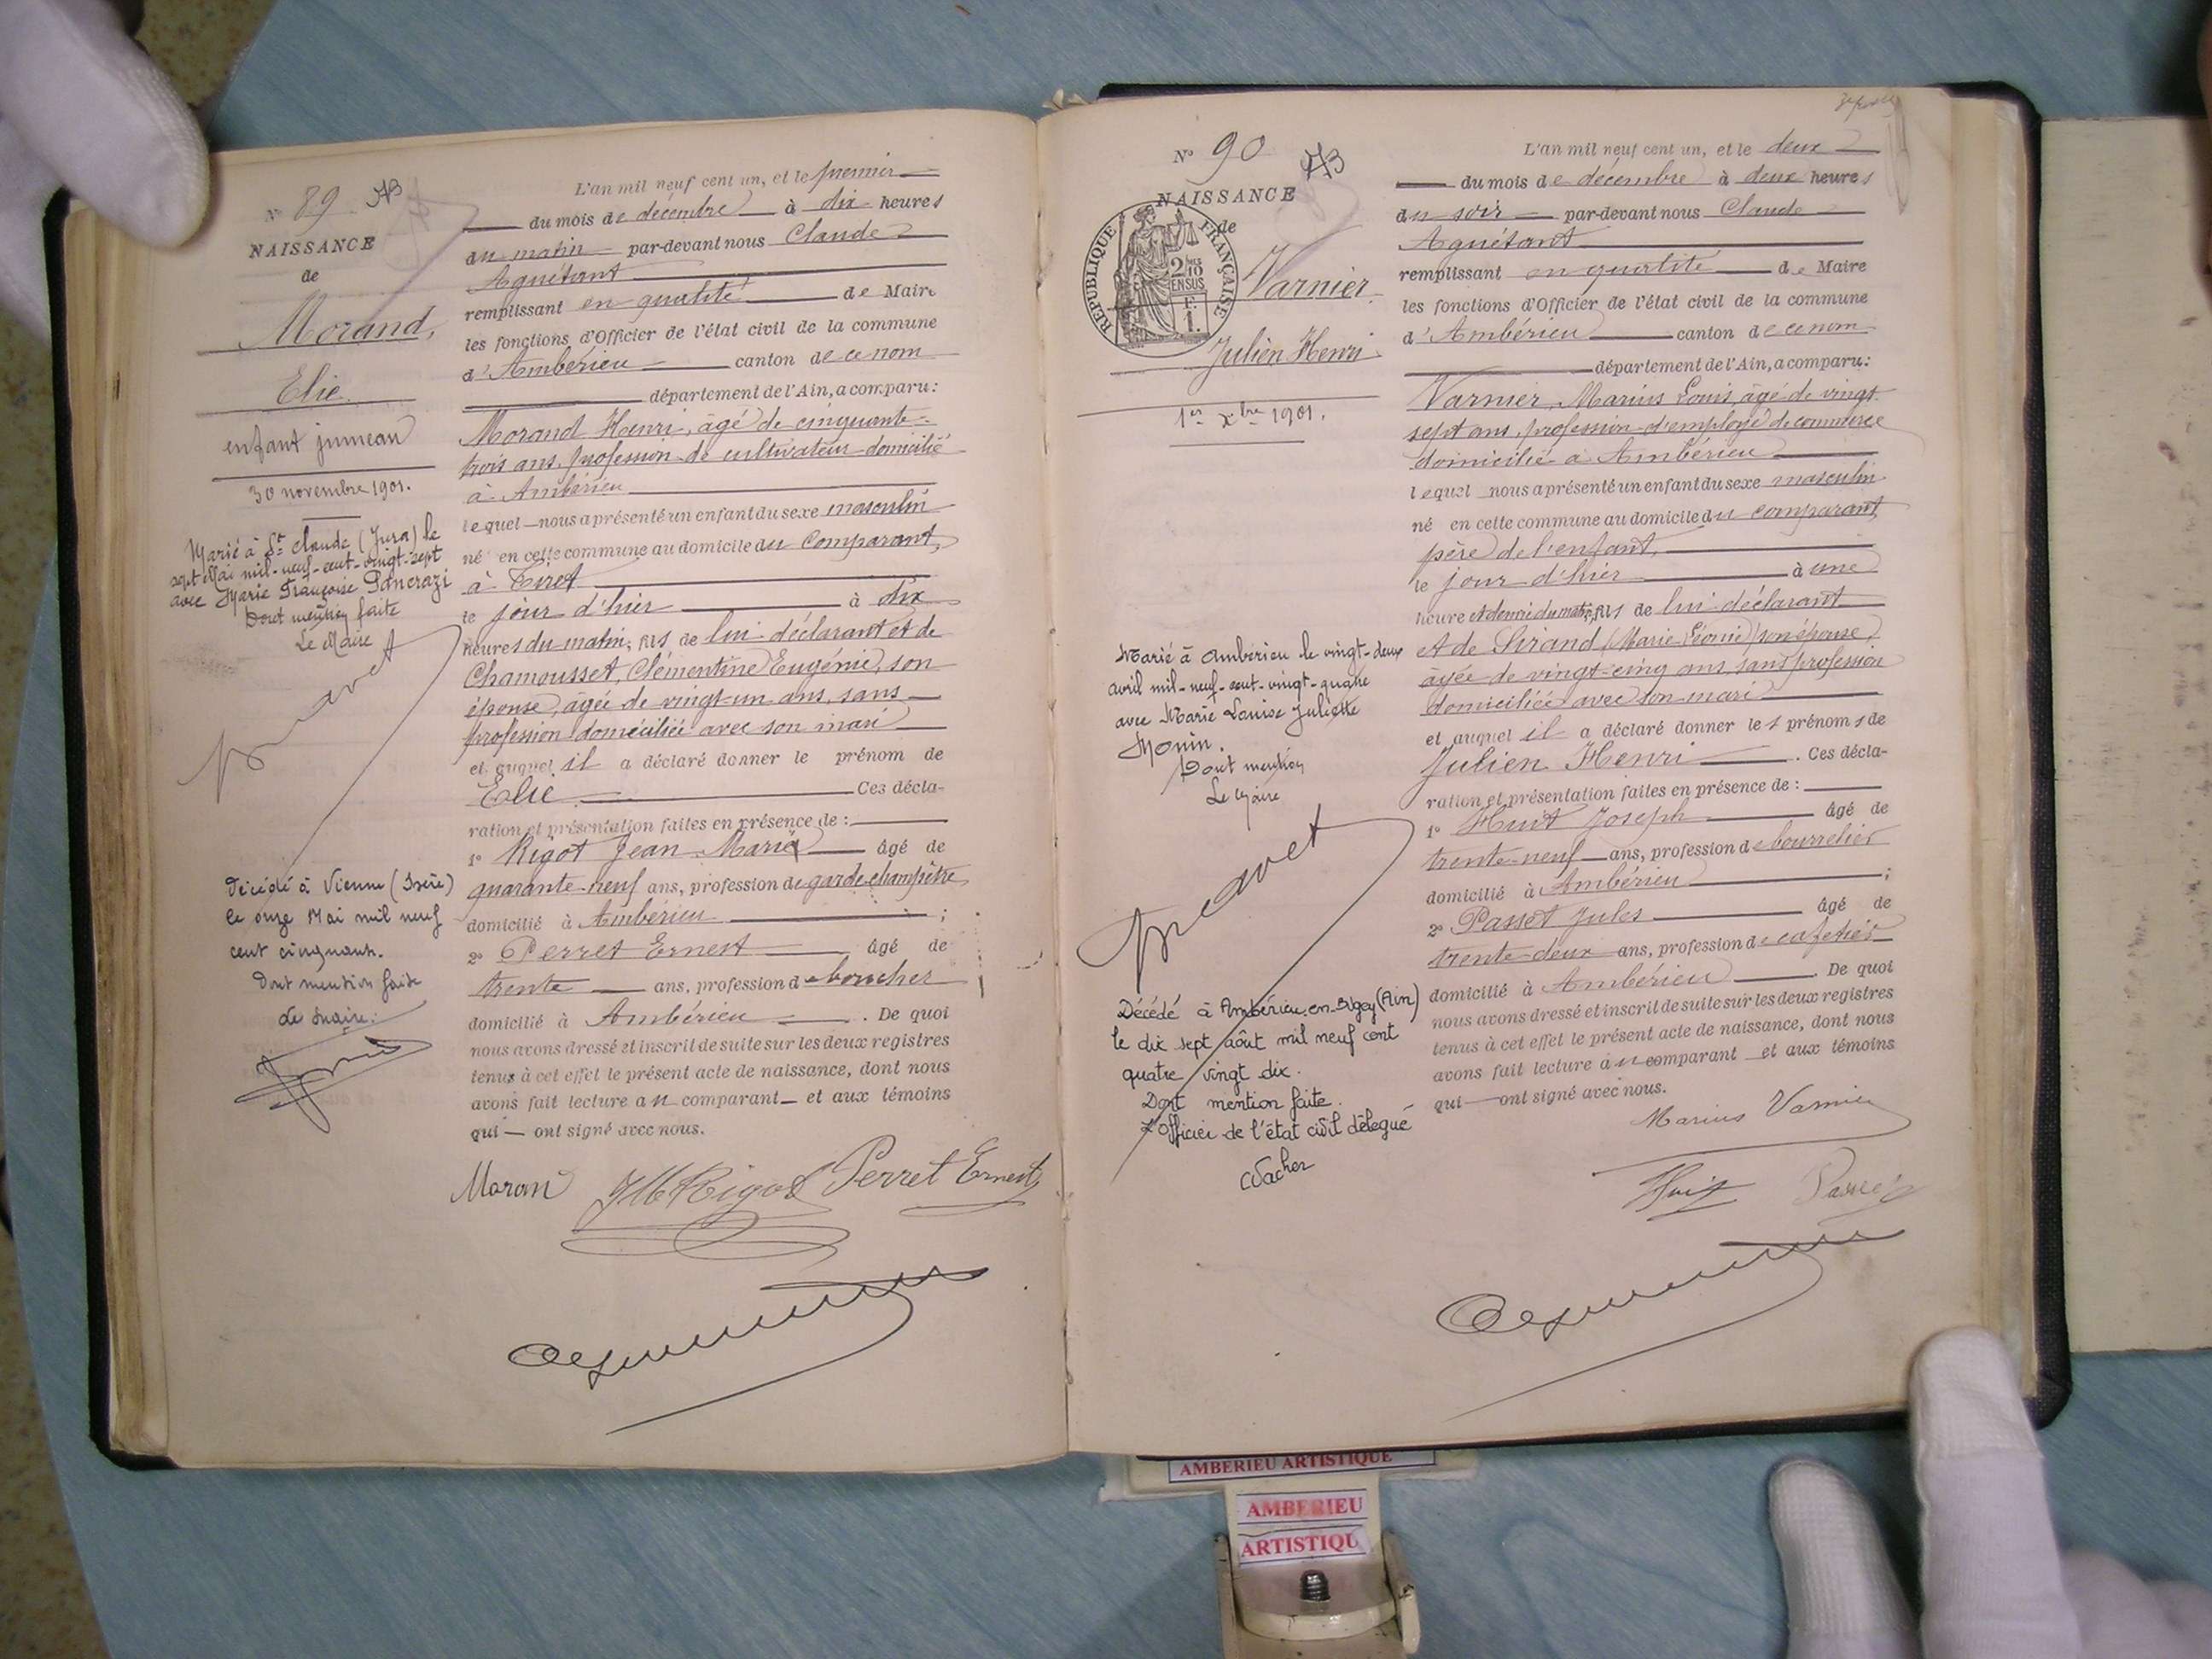 N° 89
NAISSANCE
de
Morand,
Elie
enfant jumeau
30 novembre 1901.
Marié à St Claude (Jura) le
sept Mai mil-neuf-cent-vingt-sept
avec Marie Françoise Pancrazi
Dont mention faite
Le Maire
Décédé à Vienne (Isère)
le onze Mai mil neuf
cent cinquante.
Dont mention faite
Le Maire:
L'an mil neuf cent un, et le premier
du mois de décembre à dix heures
du matin par-devant nous Claude
Aguétant
remplissant en qualité de Maire
les fonctions d'Officier de l'état civil de la commune
d'Ambérieu canton de ce nom
département de l'Ain, a comparu:
Morand Henri, âgé de cinquante-
trois ans, profession de cultivateur domicilié
à Ambérieu
lequel nous a présenté un enfant du sexe masculin
né en cette commune au domicile du Comparant,
à Tiret
le jour d'hier à dix
heures du matin, fils de lui déclarant et de
Chamousset, Clémentine Eugénie, son
épouse, âgée de vingt-un ans, sans
profession domiciliée avec son mari
et auquel il a déclaré donner le prénom de
Elie. Ces décla-
ration et présentation faites en présence de :
1° Rigot Jean-Marie âgé de
quarante-neuf ans, profession de garde-champêtre
domicilié à Ambérieu ;
2° Perret Ernest âgé de
trente ans, profession de boucher
domicilié à Ambérieu . De quoi
nous avons dressé et inscrit de suite sur les deux registres
tenus à cet effet le présent acte de naissance, dont nous
avons fait lecture au comparant et aux témoins
qui ont signé avec nous.
Moran JMRigot Perret Ernest
N° 90
NAISSANCE
de
RÉPUBLIQUE FRANÇAISE
2/10 EN SUS
F.
1.
Varnier
Julien Henri
1er Xbre 1901.
Marié à Ambérieu le vingt-deux
avril mil-neuf-cent-vingt-quatre
avec Marie Louise Juliette
Monin.
Dont mention
Le Maire
Décédé à Ambérieu-en-Bugey (Ain)
le dix sept août mil neuf cent
quatre vingt dix.
Dont mention faite.
L'officier de l'état civil délégué
L'an mil neuf cent un, et le deux
du mois de décembre à deux heures
du soir par-devant nous Claude
Aguétant
remplissant en qualité de Maire
les fonctions d'Officier de l'état civil de la commune
d'Ambérieu canton de ce nom
département de l'Ain, a comparu:
Varnier, Marius Louis, âgé de vingt-
sept ans, profession d'employé de commerce
domicilié à Ambérieu
lequel nous a présenté un enfant du sexe masculin
né en cette commune au domicile du comparant,
père de l'enfant,
le jour d'hier à une
heure et demie du matin, fils de lui déclarant
et de Sirand (Marie Léonie) son épouse,
âgée de vingt-cinq ans, sans profession
domiciliée avec son mari
et auquel il a déclaré donner les prénoms de
Julien Henri . Ces décla-
ration et présentation faites en présence de :
1° Huit Joseph âgé de
trente-neuf ans, profession de bourrelier
domicilié à Ambérieu ;
2° Passet Jules âgé de
trente-deux ans, profession de cafetier
domicilié à Ambérieu . De quoi
nous avons dressé et inscrit de suite sur les deux registres
tenus à cet effet le présent acte de naissance, dont nous
avons fait lecture au comparant et aux témoins
qui ont signé avec nous.
Marius Varnier
Huit Passet
AMBERIEU ARTISTIQUE
AMBERIEU
ARTISTIQU